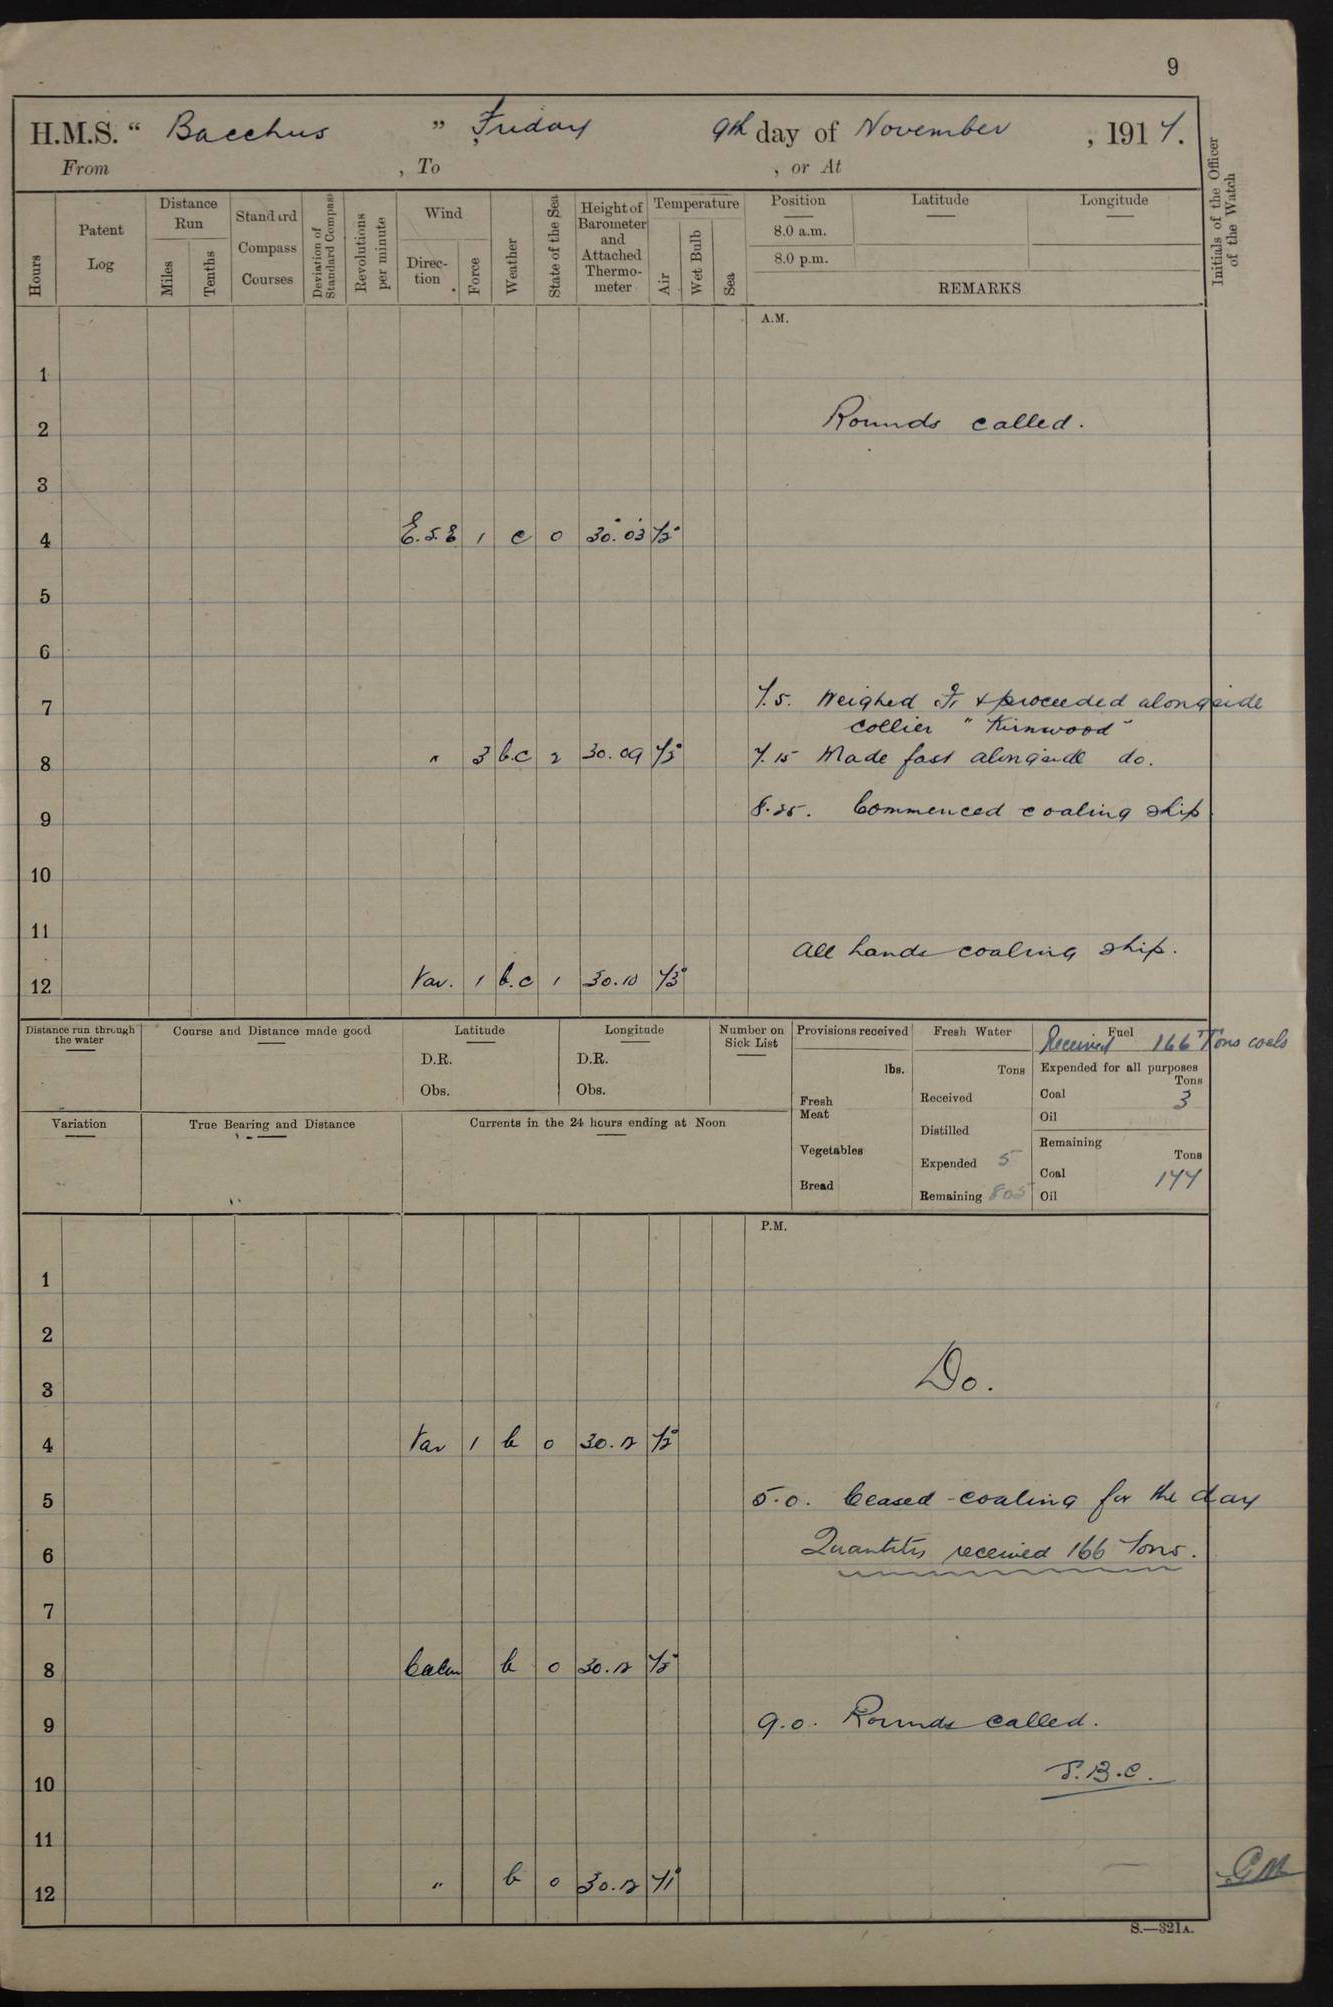 9
H.M.S. “ Bacchus ” Friday 9th day of November , 1917.
From , To , or At
Initials of the Officer of the Watch
Hours
Patent Log
Distance Run
Miles
Tenths
Standard Compass Courses
Deviation of Standard Compass
Revolutions per minute
Wind
Direc-tion
Force
Weather
State of the Sea
Height of Barometer and Attached Thermo-meter
Temperature
Air
Wet Bulb
Sea
Position
8.0 a.m.
8.0 p.m.
Latitude
Longitude
REMARKS
A.M.
1
2 Rounds called.
3
4 E.S.E 1 c 0 30.03
5
6
7 7.5. Weighed & proceeded alongside
collier " Kirnwood "
8 " 3 b.c 2 30.09 7.15 Made fast alongside do.
9 Commenced coaling ship
10
11 All hands coaling ship.
12 Var. 1 b.c 1 30.10 73°
Distance run through the water
Course and Distance made good
Latitude
D.R.
Obs.
Longitude
D.R.
Obs.
Number on Sick List
Provisions received
lbs.
Fresh Meat
Vegetables
Bread
Fresh Water
Tons
Received
Distilled
Expended 5
Remaining 805
Fuel
Received 166 Tons coals
Expended for all purposes
Tons
Coal 3
Oil
Remaining
Tons
Coal 177
Oil
Variation
True Bearing and Distance
Currents in the 24 hours ending at Noon
P.M.
1
2
3 Do.
4 Var 1 b 0 30.12
5 5.0. Ceased coaling for the day
6 Quantity received 166 Tons.
7
8 Calm b 0 30.12
9 9.0. Rounds called.
10
11
12 " b 0 30.12 71°
S.—321A.